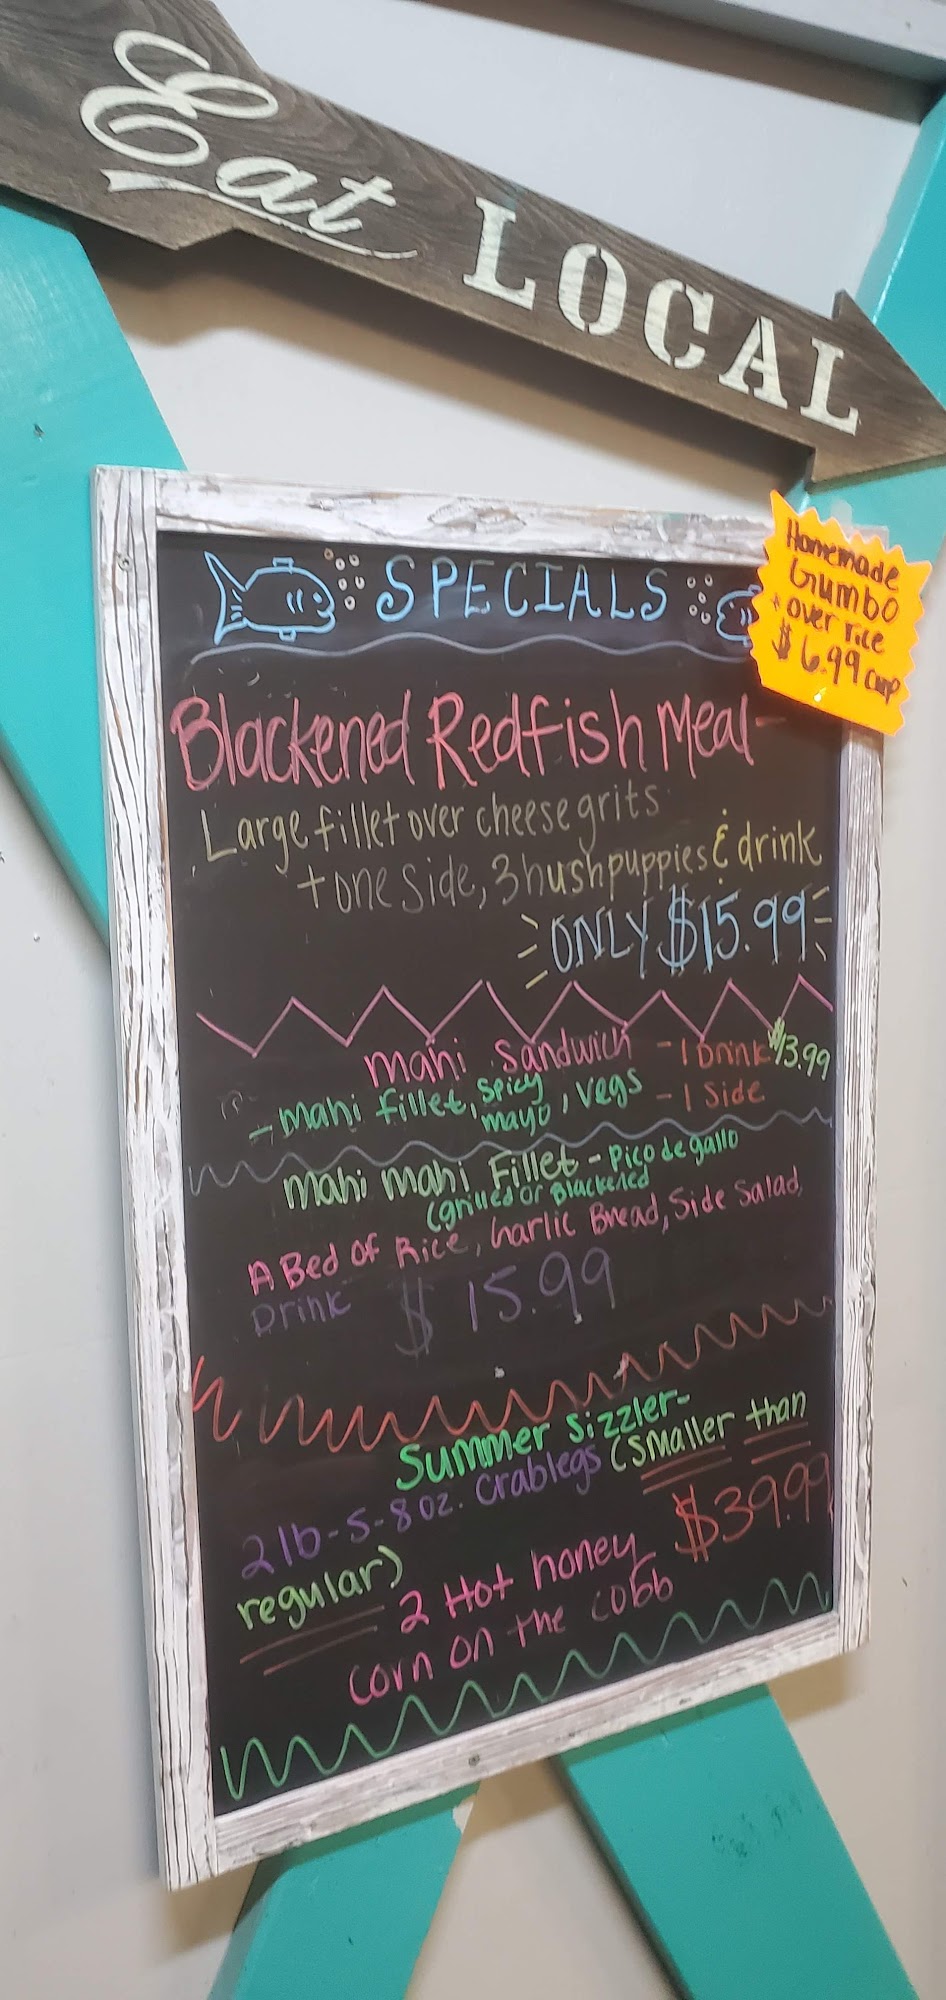 Eat LOCAL
SPECIALS
Homemade
Gumbo
+ over rice
$6.99 cup
Blackened Redfish Meal-
Large fillet over cheese grits
+ one side, 3 hushpuppies & drink
ONLY $15.99
Mahi Sandwich - 1 Drink $13.99
- Mahi fillet, spicy mayo, vegs - 1 Side
Mahi Mahi Fillet - Pico de gallo
(grilled or Blackened
A Bed of Rice, Garlic Bread, Side Salad,
Drink $15.99
Summer Sizzler-
2lb-5-8oz. Crablegs (smaller than
regular) $39.99
2 Hot honey
corn on the cobb